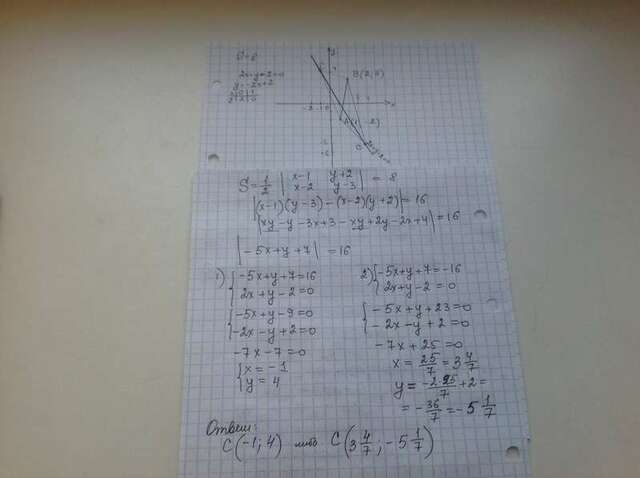 2x+y-2=0
y=-2x+2
B(2;3)
S = 1/2 | x-1 y+2 | = 8
x-2 y-3
|(x-1)(y-3) - (x-2)(y+2)| = 16
|xy-y-3x+3-xy+2y-2x+4| = 16
|-5x+y+7| = 16
1) { -5x+y+7=16
2x+y-2=0
{ -5x+y-9=0
-2x-y+2=0
-7x-7=0
{ x=-1
y=4
2) { -5x+y+7=-16
2x+y-2=0
{ -5x+y+23=0
-2x-y+2=0
-7x+25=0
x = 25/7 = 3 4/7
y = -2·25/7 + 2 =
= -36/7 = -5 1/7
Ответ:
C(-1; 4) либо C(3 4/7; -5 1/7)